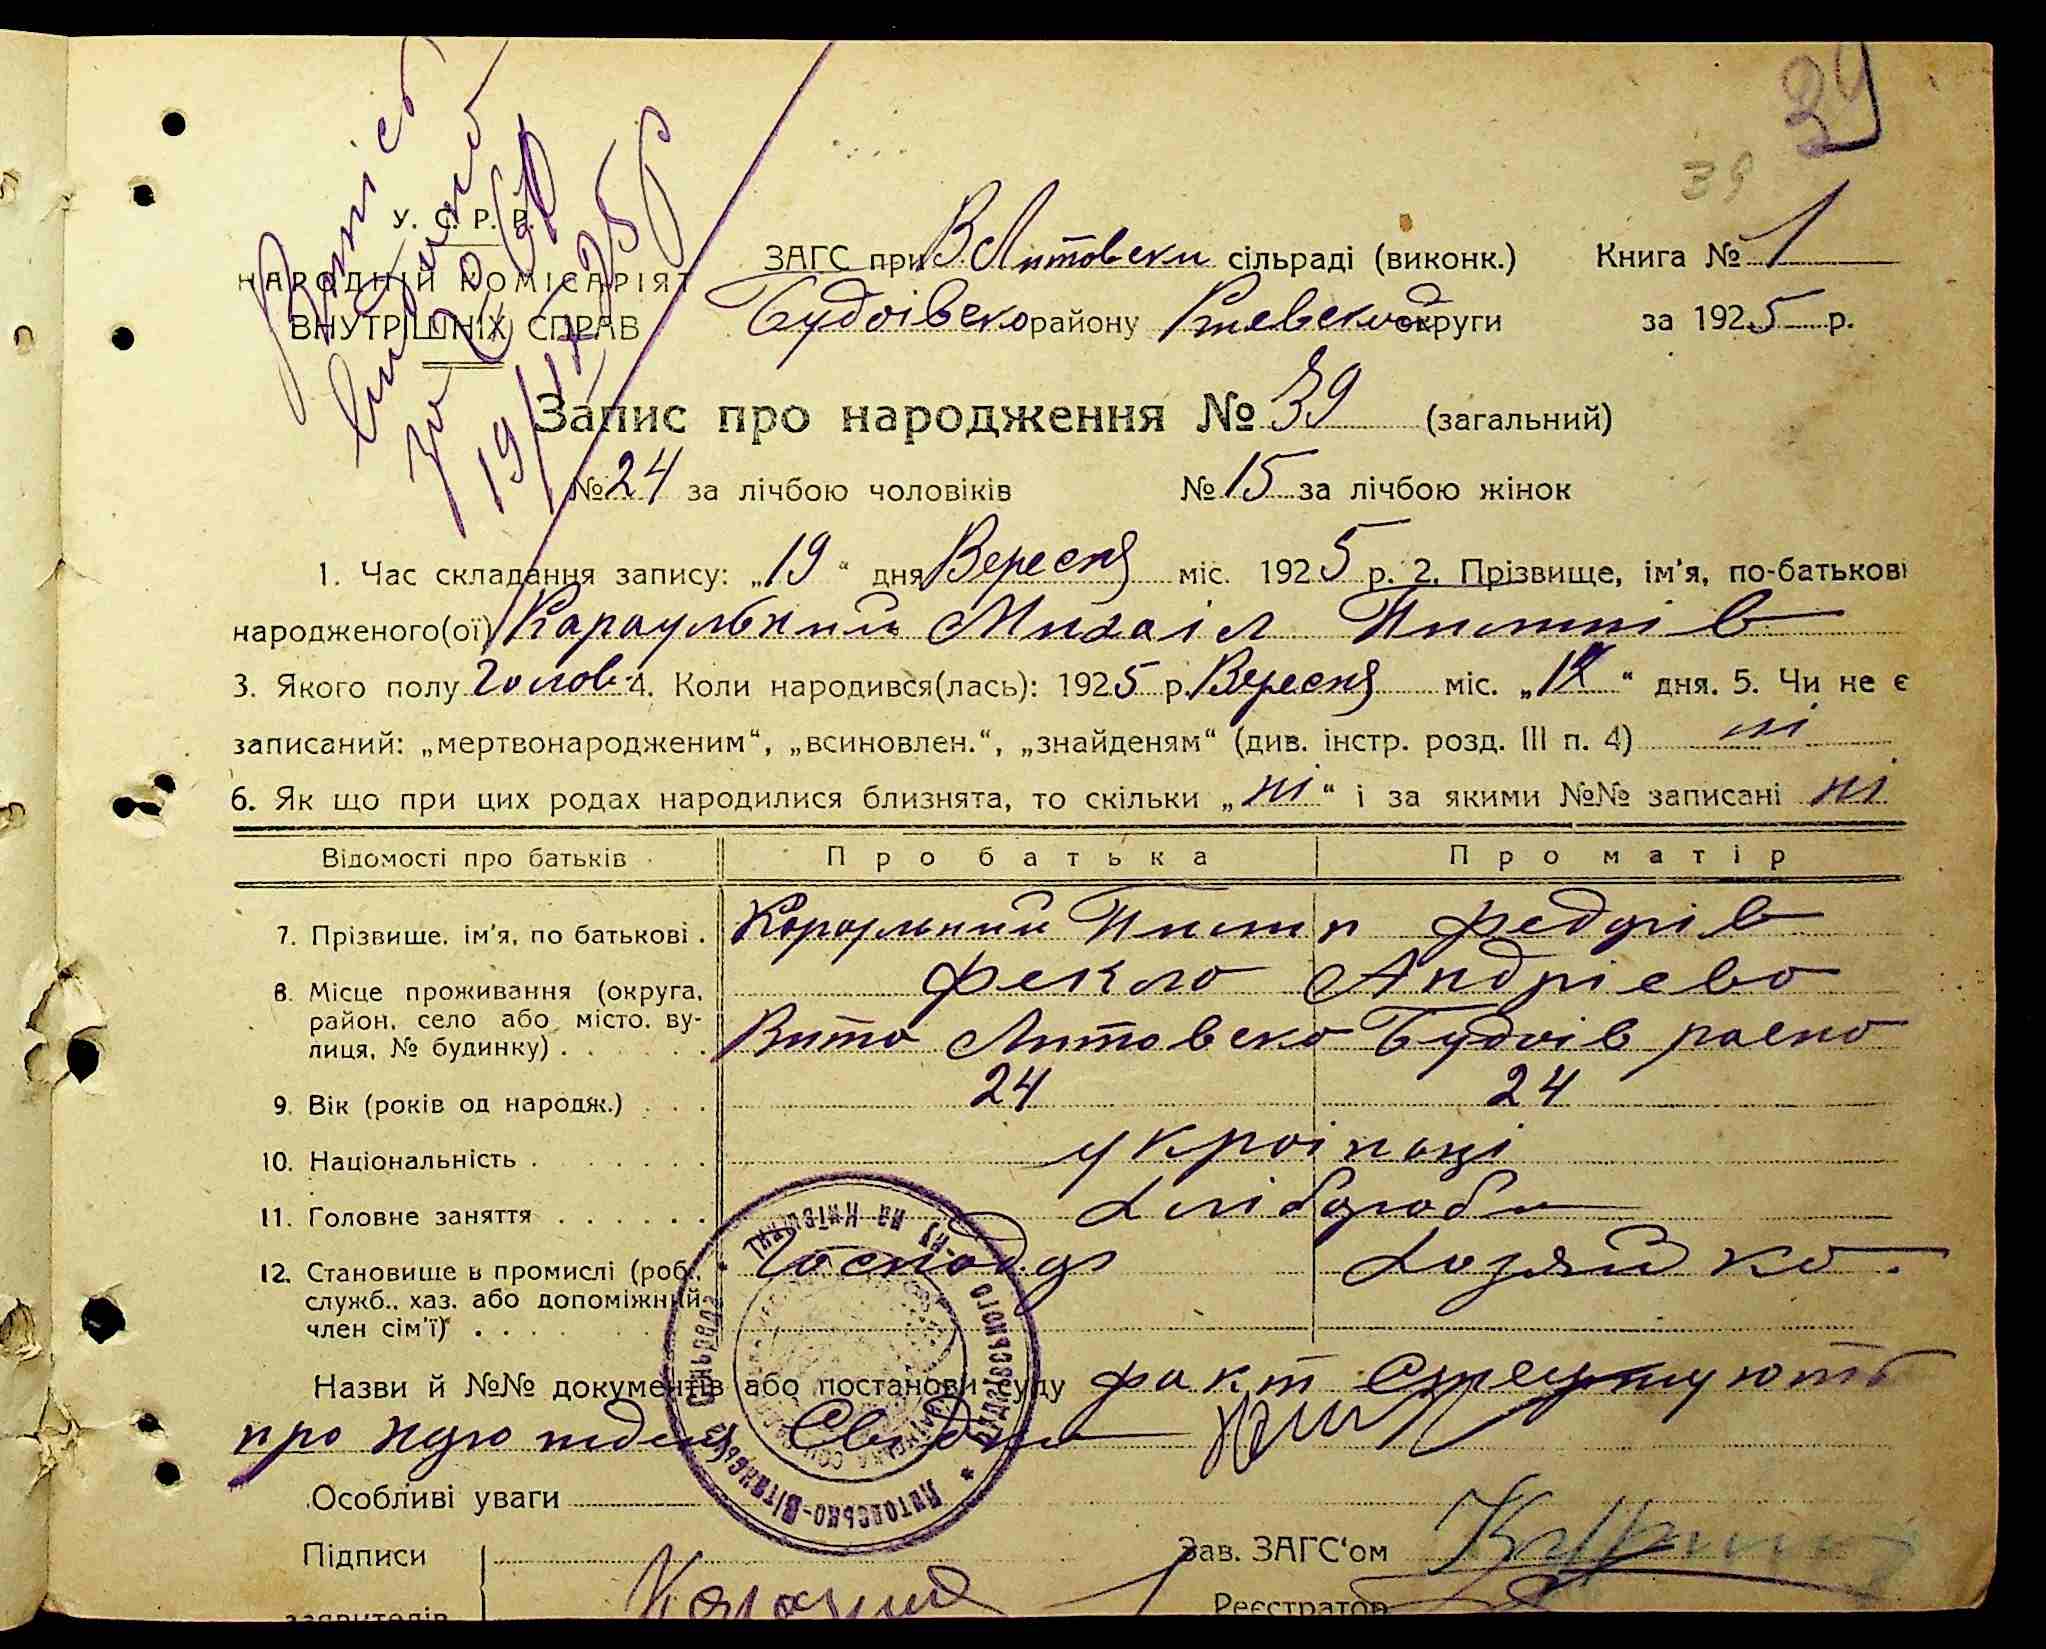 39
39
У. С. Р. Р.
НАРОДНІЙ КОМІСАРІЯТ
ВНУТРІШНІХ СПРАВ
ЗАГС при В. Литовски сільраді (виконк.)
Будаівско району Киевской округи
Книга № 1
за 1925 р.
19/IX 25 р
Запис про народження № 39 (загальний)
№ 24 за лічбою чоловіків № 15 за лічбою жінок
1. Час складання запису: „19“ дня Вересня міс. 1925 р. 2. Прізвище, ім'я, по-батькові
народженого(ої) Караульний Михаіл Пилипів
3. Якого полу Чолов. 4. Коли народився(лась): 1925 р. Вересня міс. „ “ дня. 5. Чи не є
записаний: „мертвонародженим“, „всиновлен.“, „знайденям“ (див. інстр. розд. III п. 4) ні
6. Як що при цих родах народилися близнята, то скільки „ні“ і за якими №№ записані ні
Відомості про батьків Про батька Про матір
7. Прізвище, ім'я, по батькові . Караульний Пилип Федорів
Фекла Андріева
8. Місце проживання (округа,
район, село або місто, ву-
лиця, № будинку) . . . . . Вита Литовска Будаів раена
9. Вік (років од народж.) . . . 24 24
10. Національність . . . . . . . украінці
11. Головне заняття . . . . . . хлібороби
12. Становище в промислі (роб.,
служб., хаз. або допоміжний
член сім'ї) . . . . . . Господар Хозяйка.
Назви й №№ документів або постанови суду факт
про
Литовсько-Вітянська Сільрада
на Київщині
Особливі уваги
Підписи
заявителів
Зав. ЗАГС'ом
Реєстратор